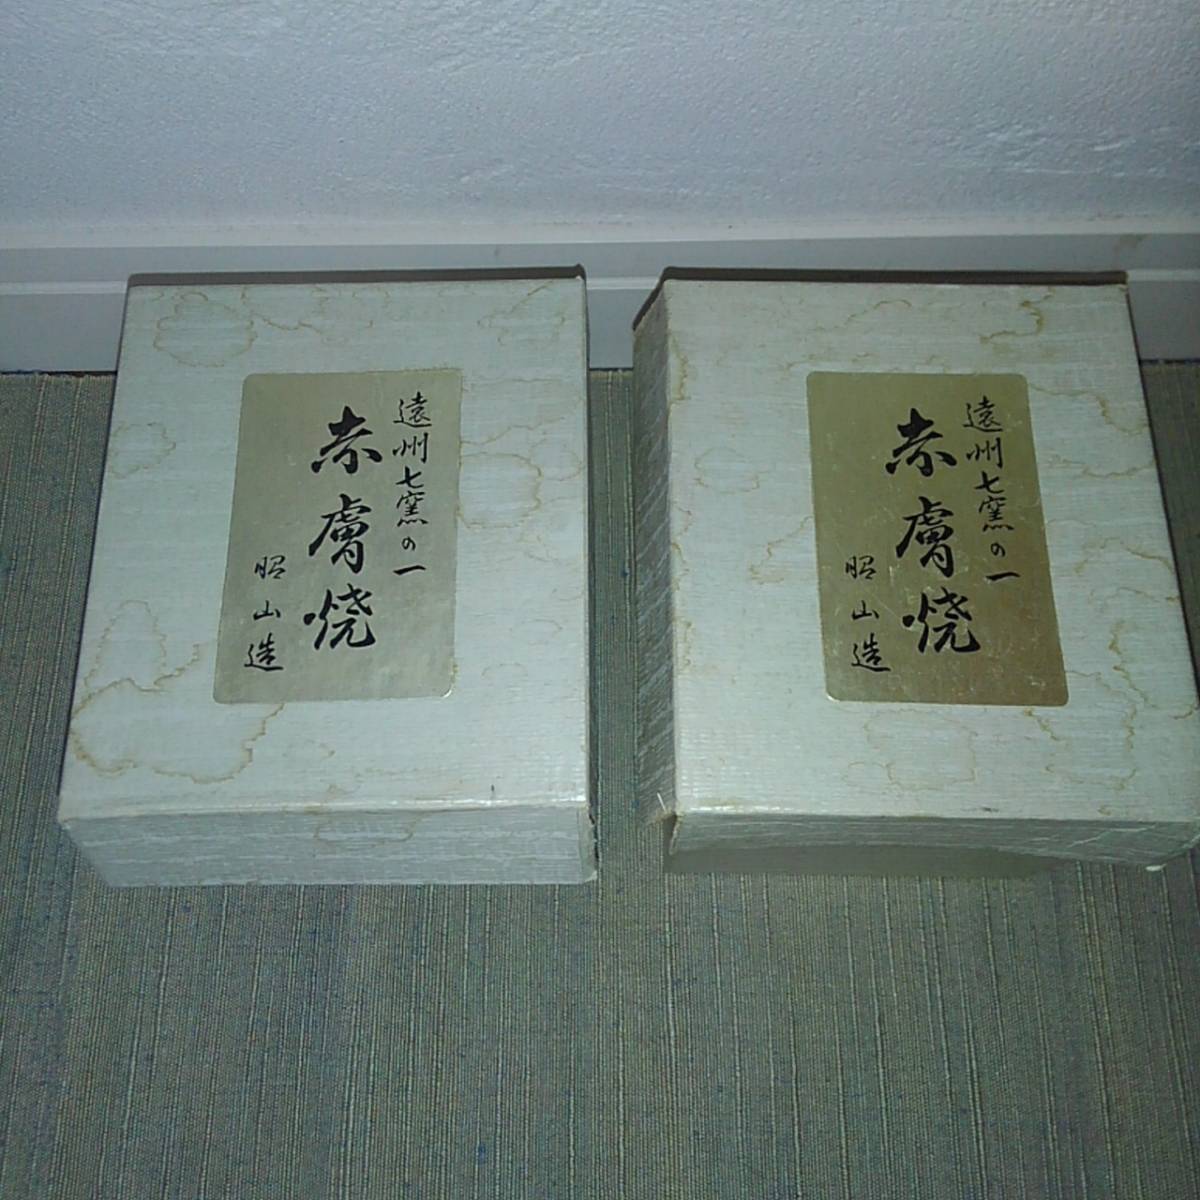 遠州七窯の一
赤膚焼
昭山造
遠州七窯の一
赤膚焼
昭山造